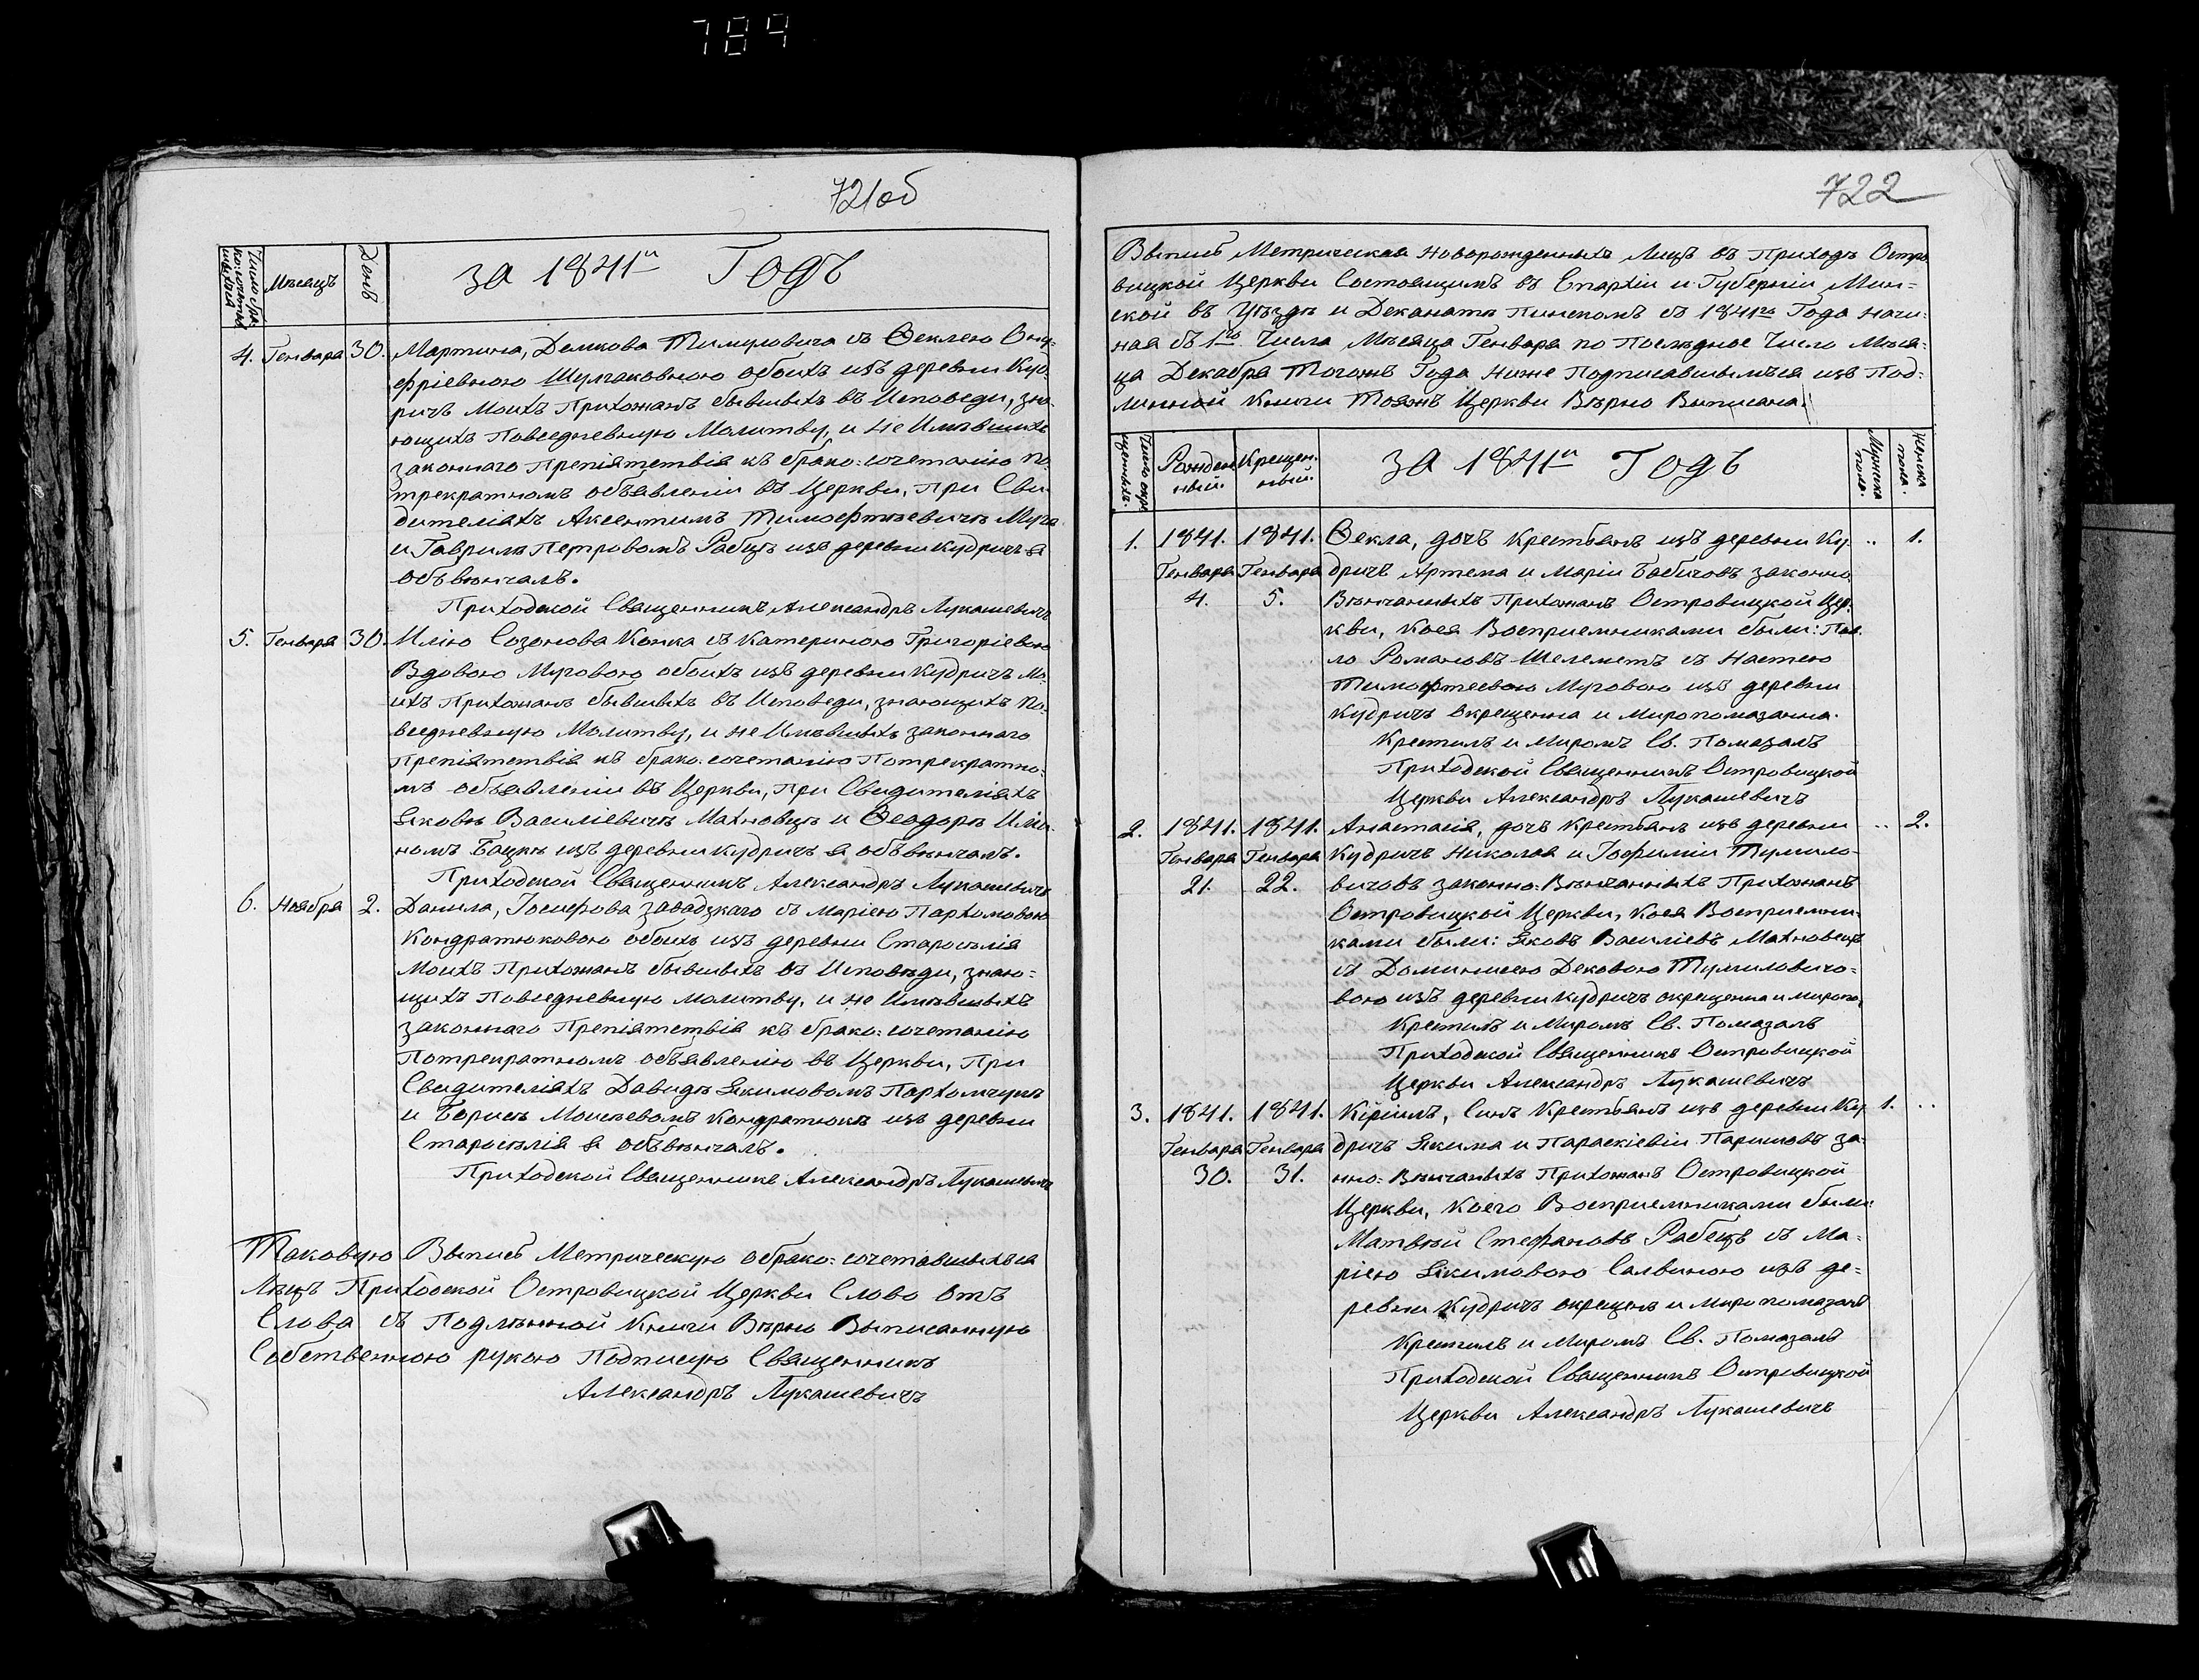 784
721об
Число бра-
косочетав-
шихся
Мѣсяцъ
День
за 1841й Годъ
4. Генваря 30. Мартина, Демкова Тимуловича съ Ѳеклею Ону-
фріевною Шулгаковною обоихъ изъ деревни Куд-
ричъ Моихъ Прихожанъ бывшихъ въ Исповеди, зна-
ющихъ Повседневную Молитву, и не Имѣвшихъ
законнаго Препіятствія къ брако: сочетанію по
трекратномъ объявленіи въ Церкви, При Сви-
дителіахъ Аксентимъ Тимофтѣевичѣ Муха
и Гаврилѣ Петровомъ Рабцѣ изъ деревни Кудричъ я
объвѣнчалъ.
Приходской Священникъ Александръ Лукашевичъ
5. Генваря 30. Илію Созонова Конка съ Катериною Григоріевою
Вдовою Муговою обоихъ изъ деревни Кудричъ Мо-
ихъ Прихожанъ бывшихъ въ Исповеди, знающихъ По-
вседневную Молитву, и не Имѣвшихъ законнаго
Препіятствія къ брако: сочетанію Потрекратно-
мъ объявленіи въ Церкви, При Свидителіяхъ
Яковѣ Василіевичѣ Махновцѣ и Ѳеодорѣ Илiи-
номъ Бацкѣ изъ деревни Кудричъ я объвѣнчалъ.
Приходской Священникъ Александръ Лукашевичъ
6. Ноября 2. Данила, Іосифова Завадзкаго съ Маріею Пархомовою
Кондратюковою обоихъ изъ деревни Старосѣлія
Моихъ Прихожанъ бывшихъ въ Исповѣди, знаю=
щихъ Повседневную Молитву, и не Имѣвшихъ
законнаго Препіятствія къ брако: сочетанію
Потрекратномъ объявленію въ Церкви, При
Свидителіахъ Давидѣ Якимовомъ Пархомчукѣ
и Борисѣ Моисѣевомъ Кондратюкѣ изъ деревни
Старосѣлія я объвѣнчалъ.
Приходской Священникъ Александръ Лукашевичъ
Таковую Выпись Метрическую обрако: сочетавшихъся
Лицъ Приходской Островицкой Церкви Слово отъ
Слова съ Подлѣнной Книги Вѣрно Выписанную
Собственною рукою Подписую Священникъ
Александръ Лукашевичъ
722
Выпись Метрическая Новорожденныхъ Лицъ въ Приходѣ Остро
вицкой Церкви Состоящимъ въ Епархіи и Губерніи Мин=
ской въ Уѣздѣ и Деканатѣ Пинскомъ съ 1841го Года Начи-
ная съ 1го Числа Мѣсяца Генваря по Послѣдное Число Мѣся-
ца Декабря Тогожъ Года Ниже Подписавшымъся изъ Под-
линной Книги Тояжъ Церкви Вѣрно Выписана.
Число окре
щенныхъ.
Рожден
ный.
Крещен.
ный.
за 1841й Годъ
Мужска
пола.
Женска
пола.
1. 1841. 1841. Ѳекла, дочъ Крестьянъ изъ деревни Ку- .. 1.
Генваря Генваря дричъ Артема и Маріи Бабичовъ законно
4. 5. Вѣнчанныхъ Прихожанъ Островицкой Цер-
кви, Коея Восприемниками были: Пав-
ло Романовъ Шелеметъ съ Настею
Тимофтеевою Муговою изъ деревни
Кудричъ окрещенна и Миропомазанна.
Крестилъ и Миромъ Св. Помазалъ
Приходской Священникъ Островицкой
Церкви Александръ Лукашевичъ
2. 1841. 1841. Анастасія, дочъ Крестьянъ изъ деревни .. 2.
Генваря Генваря Кудричъ Николая и Іофиміи Тумило-
21. 22. вичовъ законно: Вѣнчанныхъ Прихожанъ
Островицкой Церкви, Коея Восприемни-
ками были: Яковъ Василіевъ Махновецъ
съ Доминисею Дековою Тумиловичо=
вою изъ деревни Кудричъ окрещенна и миропо,
Крестилъ и Миромъ Св. Помазалъ
Приходской Священникъ Островицкой
Церкви Александръ Лукашевичъ
3. 1841. 1841. Кіріилъ, Синъ Крестьянъ изъ деревни Ку- 1. ..
Генваря Генваря дричъ Якима и Параскіевіи Паришовъ за-
30. 31. нно: Вѣнчаныхъ Прихожанъ Островицкой
Церкви, Коего Восприемниками были:
Матвѣй Стефановъ Рабецъ съ Ма-
ріею Якимовою Салвиною изъ де=
ревни Кудричъ окрещенъ и миропомазанъ
Крестилъ и Миромъ Св. Помазалъ
Приходской Священникъ Островицкой
Церкви Александръ Лукашевичъ